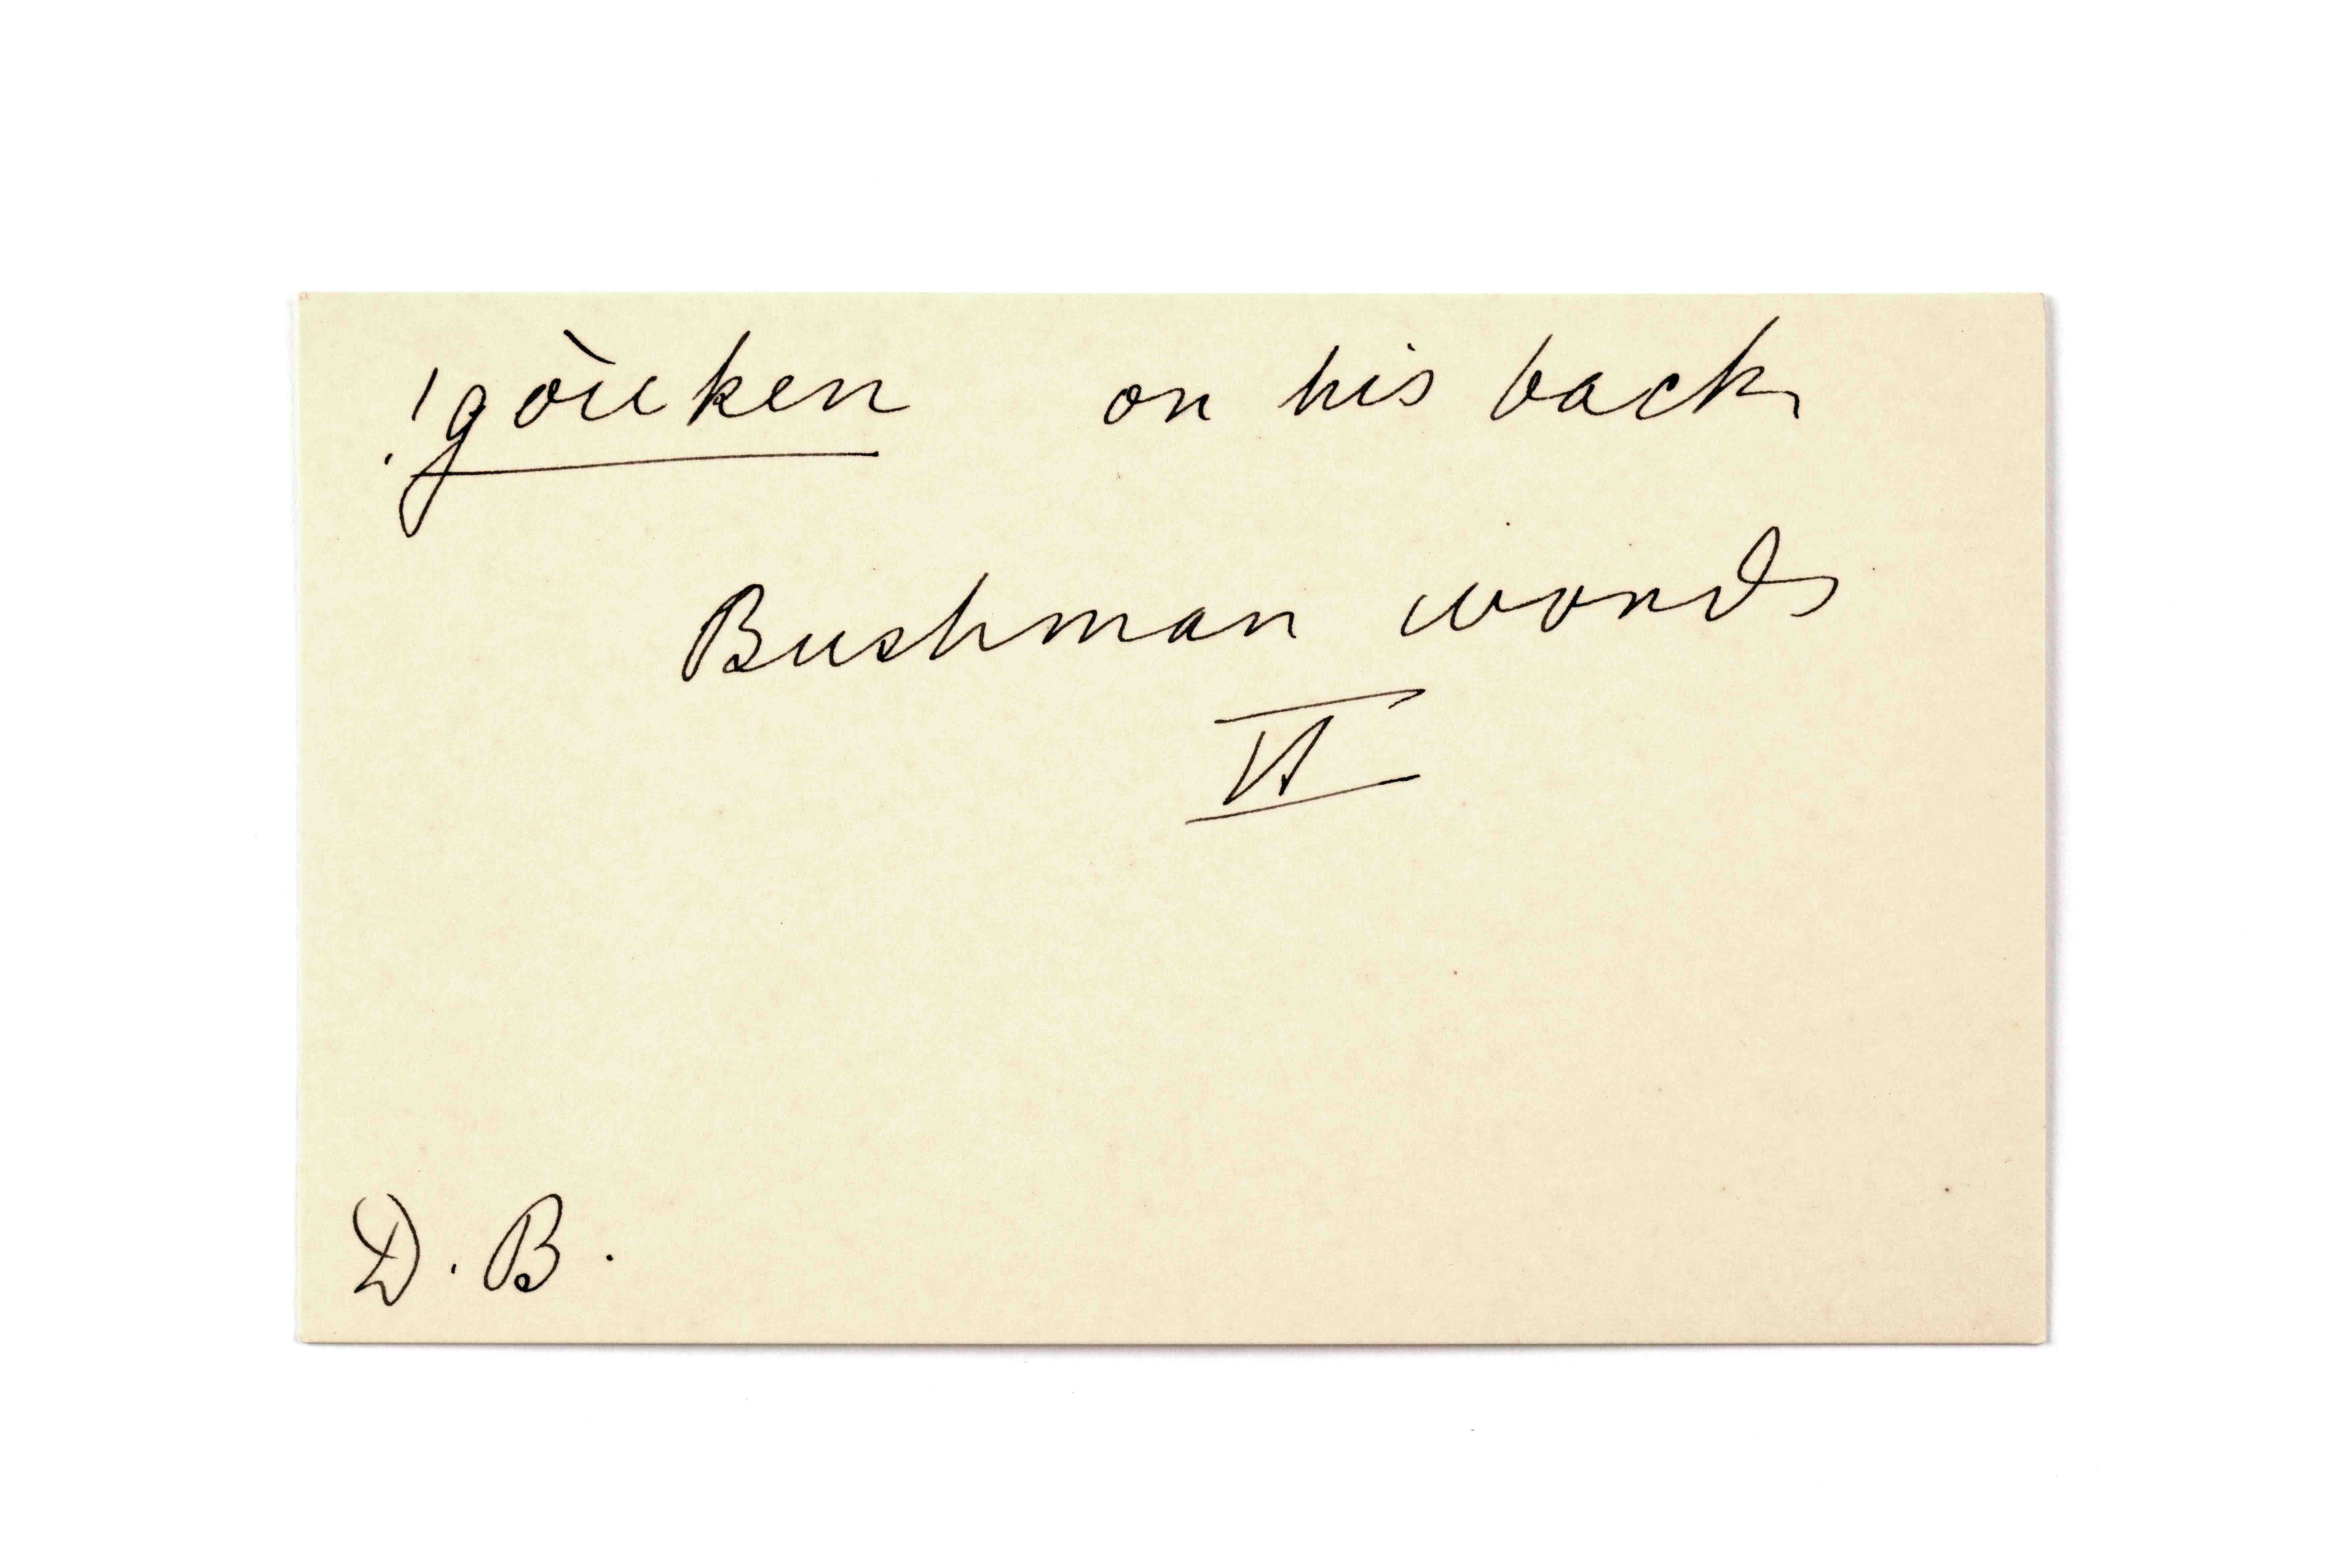 !gòuken on his back
Bushman words
VI
D. B.